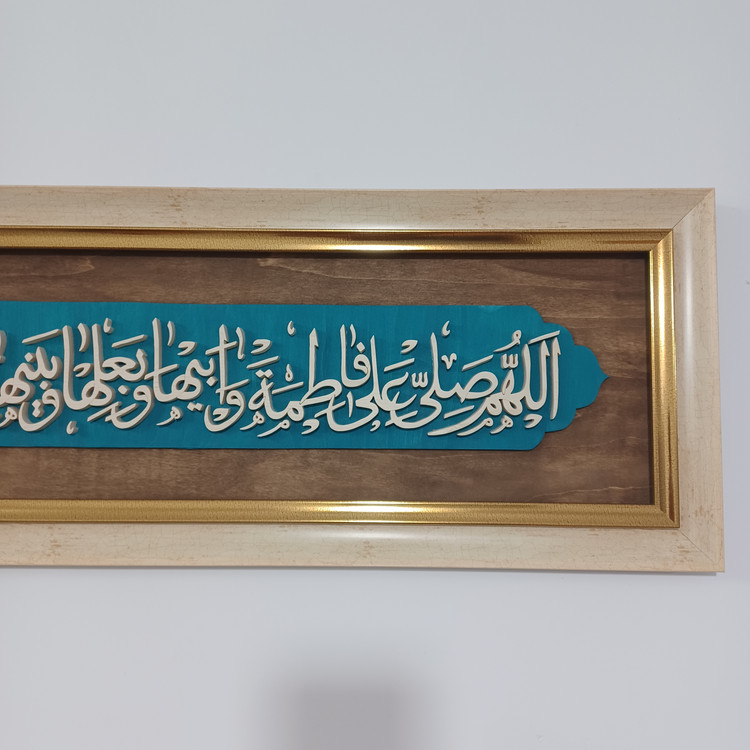 اَللّٰهُمَّ صَلِّ عَلىٰ فاطِمَةَ وَ اَبیها وَ بَعْلِها وَ بَنیها